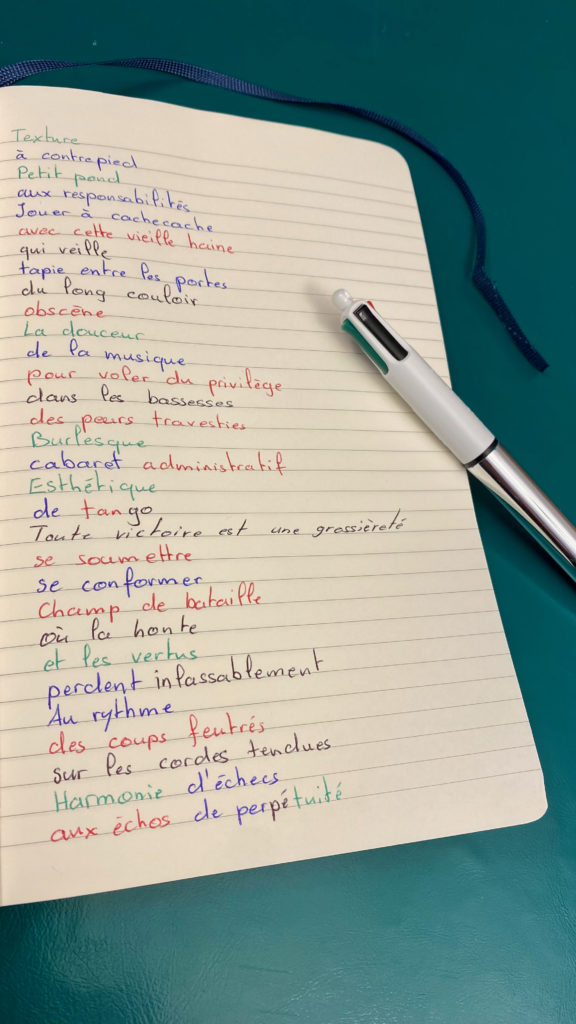 Texture
à contrepied
Petit pond
aux responsabilités
Jouer à cachecache
avec cette vieille haine
qui veille
tapie entre les portes
du long couloir
obscène
La douceur
de la musique
pour voler du privilège
dans les bassesses
des peurs travesties
Burlesque
cabaret administratif
Esthétique
de tango
Toute victoire est une grossièreté
se soumettre
se conformer
Champ de bataille
où la honte
et les vertus
perdent inlassablement
Au rythme
des coups feutrés
sur les cordes tendues
Harmonie d'échecs
aux échos de perpétuité